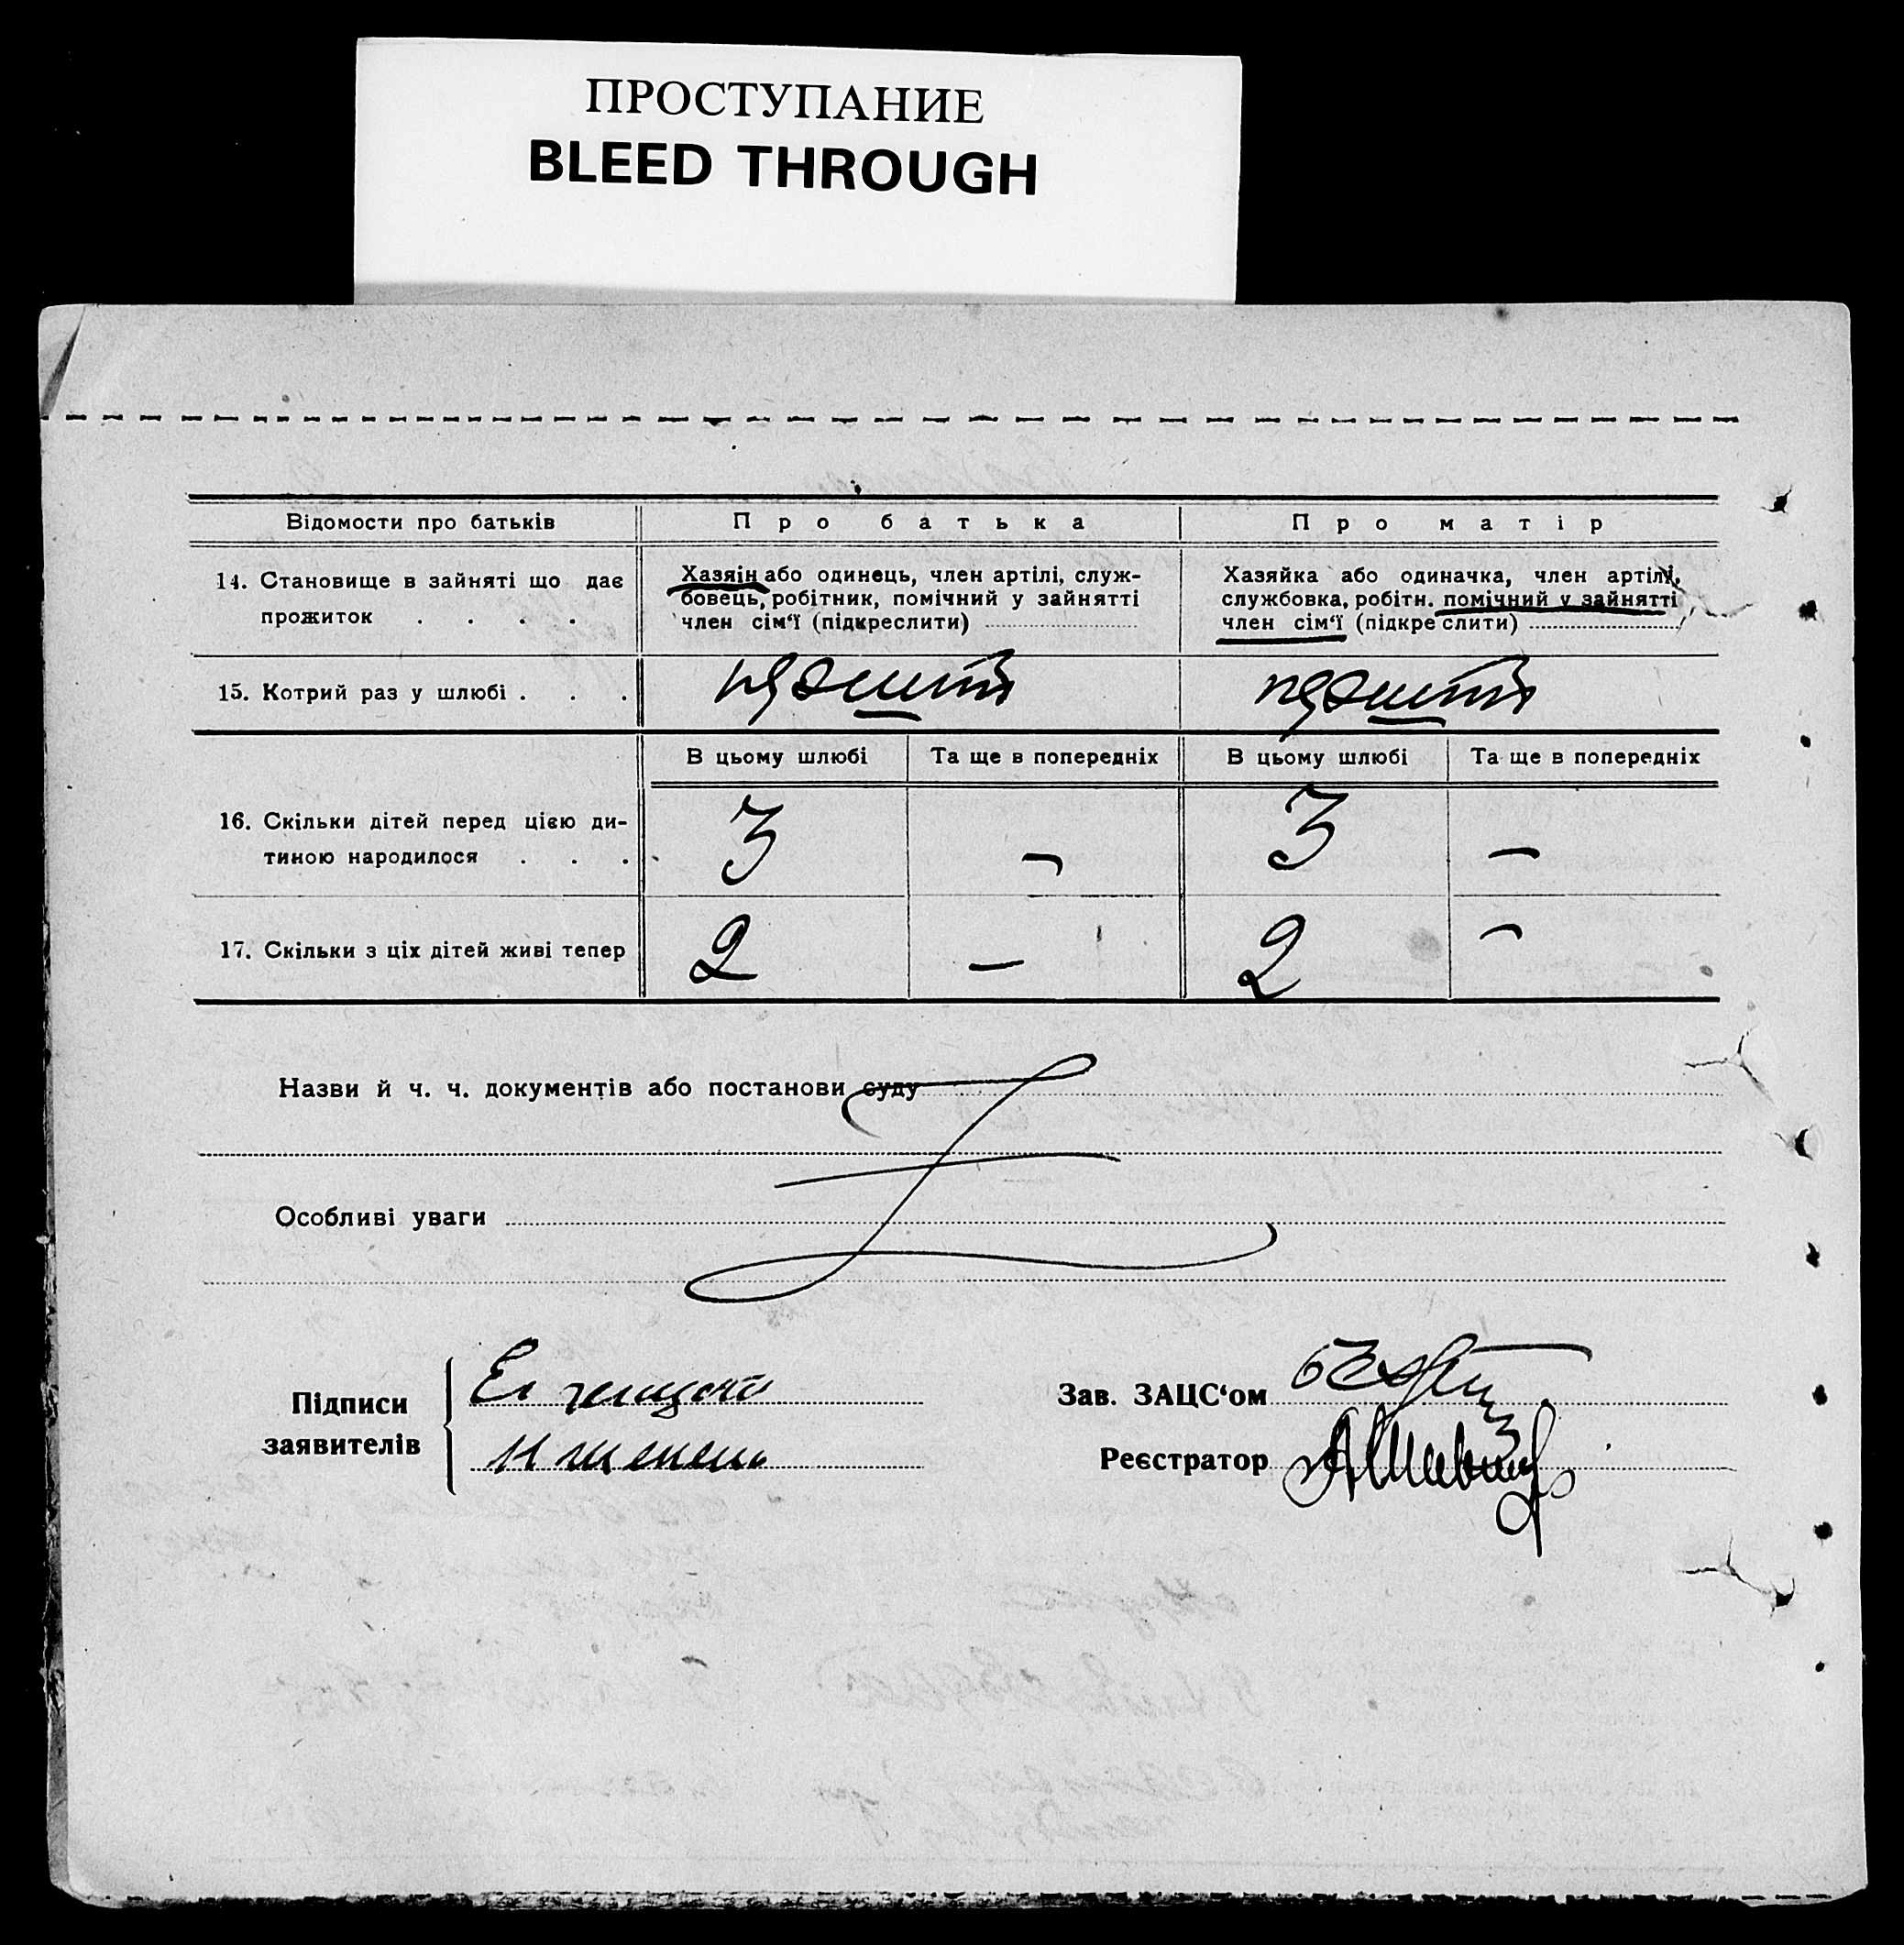 ПРОСТУПАНИЕ
BLEED THROUGH
Відомости про батьків
Про батька
Про матір
14. Становище в зайняті що дає
прожиток . . . .
Хазяїн або одинець, член артілі, служ-
бовець, робітник, помічний у зайнятті
член сім‘ї (підкреслити)
Хазяйка або одиначка, член артілі,
службовка, робітн. помічний у зайнятті
член сім‘ї (підкреслити)
15. Котрий раз у шлюбі . . .
В цьому шлюбі
Та ще в попередніх
В цьому шлюбі
Та ще в попередніх
16. Скільки дітей перед цією ди-
тиною народилося . . .
3
—
3
—
17. Скільки з ціх дітей живі тепер
2
—
2
—
Назви й ч. ч. документів або постанови суду
Особливі уваги
Підписи
заявителів
Зав. ЗАЦС‘ом
Реєстратор